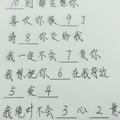 10 刻都在想你
喜欢你很 9 了
请 8 你交给我
我一定不会 7 负你
我想把你 6 在我身边
5 论 4
我绝对不会 3 心 2 意